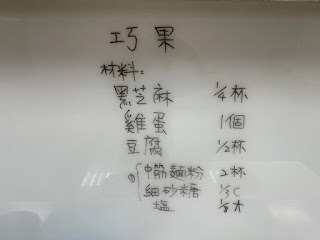 巧果
材料:
黑芝麻 1/4杯
雞蛋 1個
豆腐 1/2杯
中筋麵粉 2杯
細砂糖 1/3C
塩 1/8大